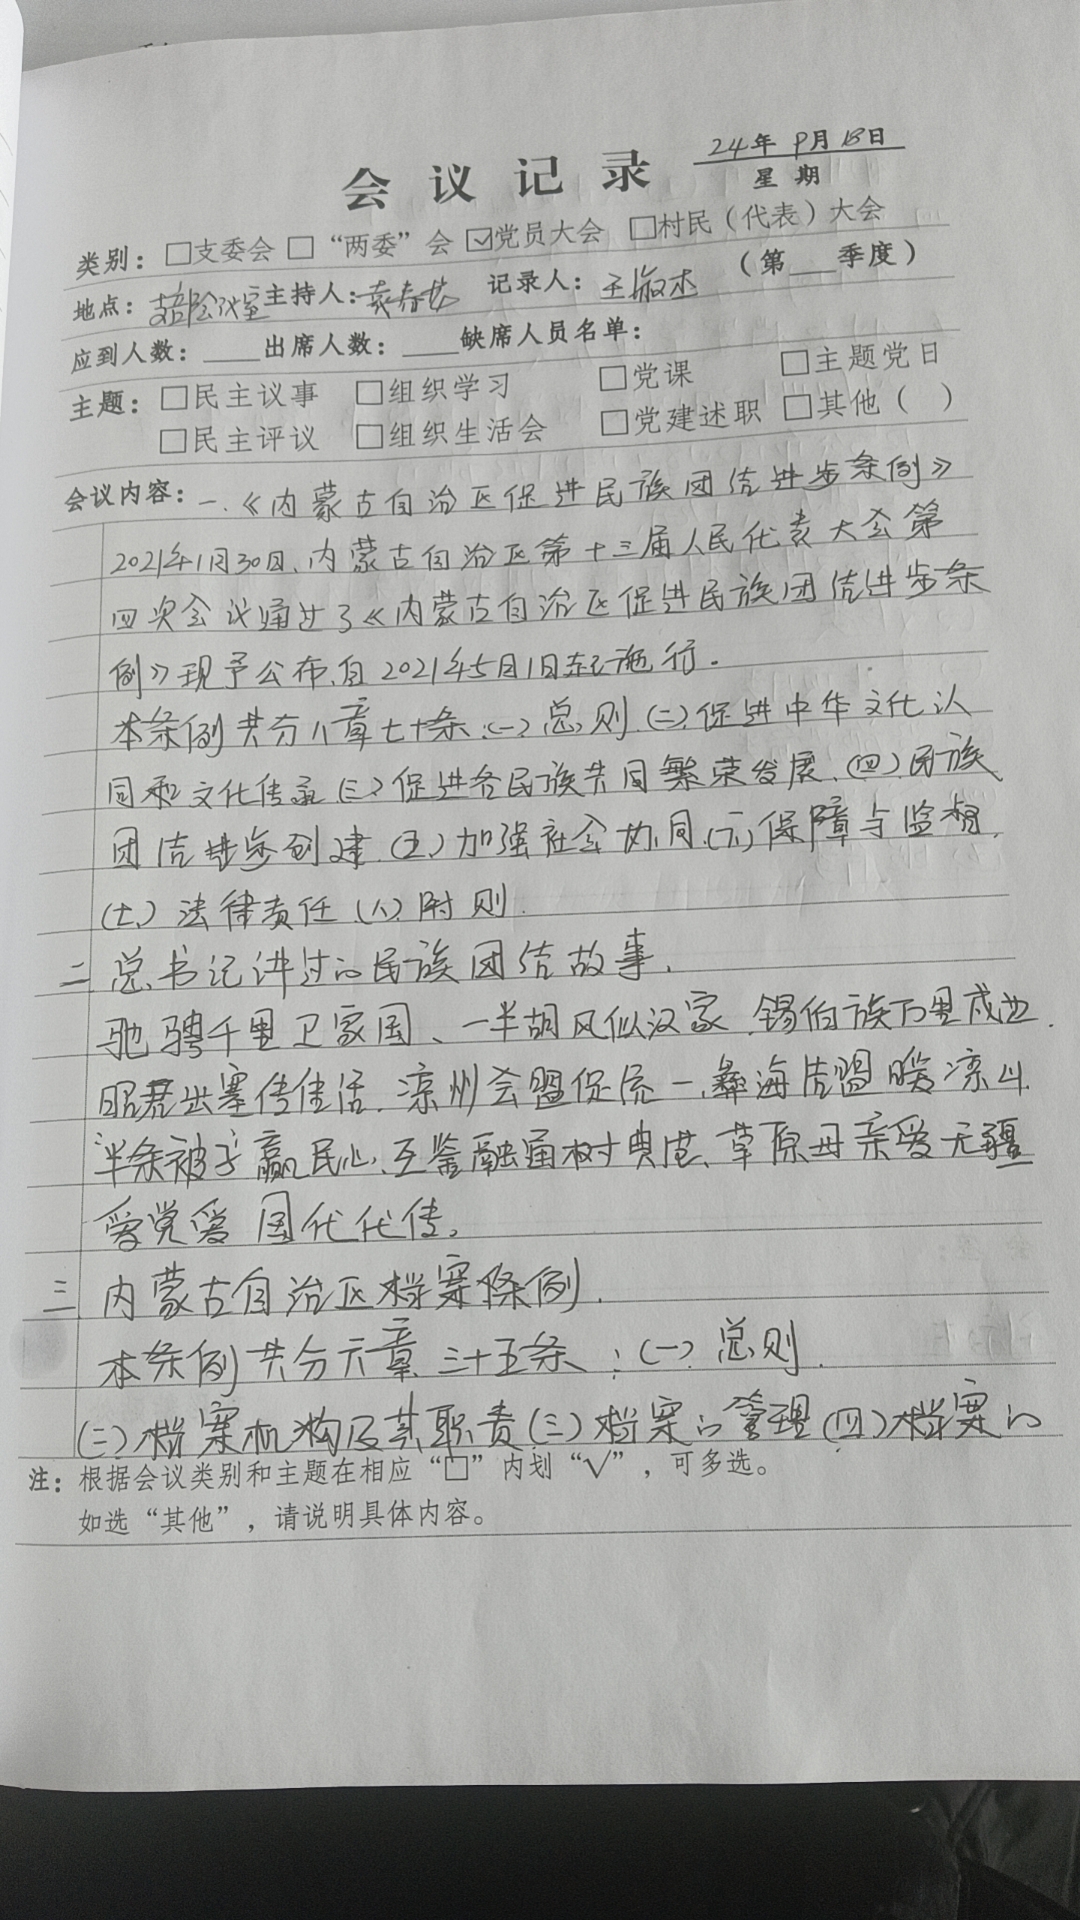 24年9月18日
会议记录
星期
类别：□支委会 □“两委”会 ☑党员大会 □村民（代表）大会
地点：支部会议室 主持人：袁春 记录人：王淑杰 （第___季度）
应到人数：____出席人数：____缺席人员名单：
主题：□民主议事 □组织学习 □党课 □主题党日
□民主评议 □组织生活会 □党建述职 □其他（ ）
会议内容：一.《内蒙古自治区促进民族团结进步条例》
2021年1月30日、内蒙古自治区第十三届人民代表大会第
四次会议通过了《内蒙古自治区促进民族团结进步条
例》现予公布、自2021年5月1日起施行.
本条例共分八章七十条:(一)总则.(二)促进中华文化认
同和文化传承(三)促进各民族共同繁荣发展、(四)民族
团结进步创建.(五)加强社会协同.(六)保障与监督.
(七)法律责任(八)附则.
二.总书记讲过的民族团结故事.
驰骋千里卫家国、一半胡风似汉家.锡伯族万里戍边.
昭君出塞传佳话.凉州会盟促统一.彝海结盟暖凉山.
半条被子赢民心.互鉴融通树典范、草原母亲爱无疆
爱党爱国代代传。
三.内蒙古自治区档案条例.
本条例共分六章.三十五条：(一)总则.
(二)档案机构及其职责(三)档案的管理(四)档案的
注：根据会议类别和主题在相应“□”内划“√”，可多选。
如选“其他”，请说明具体内容。